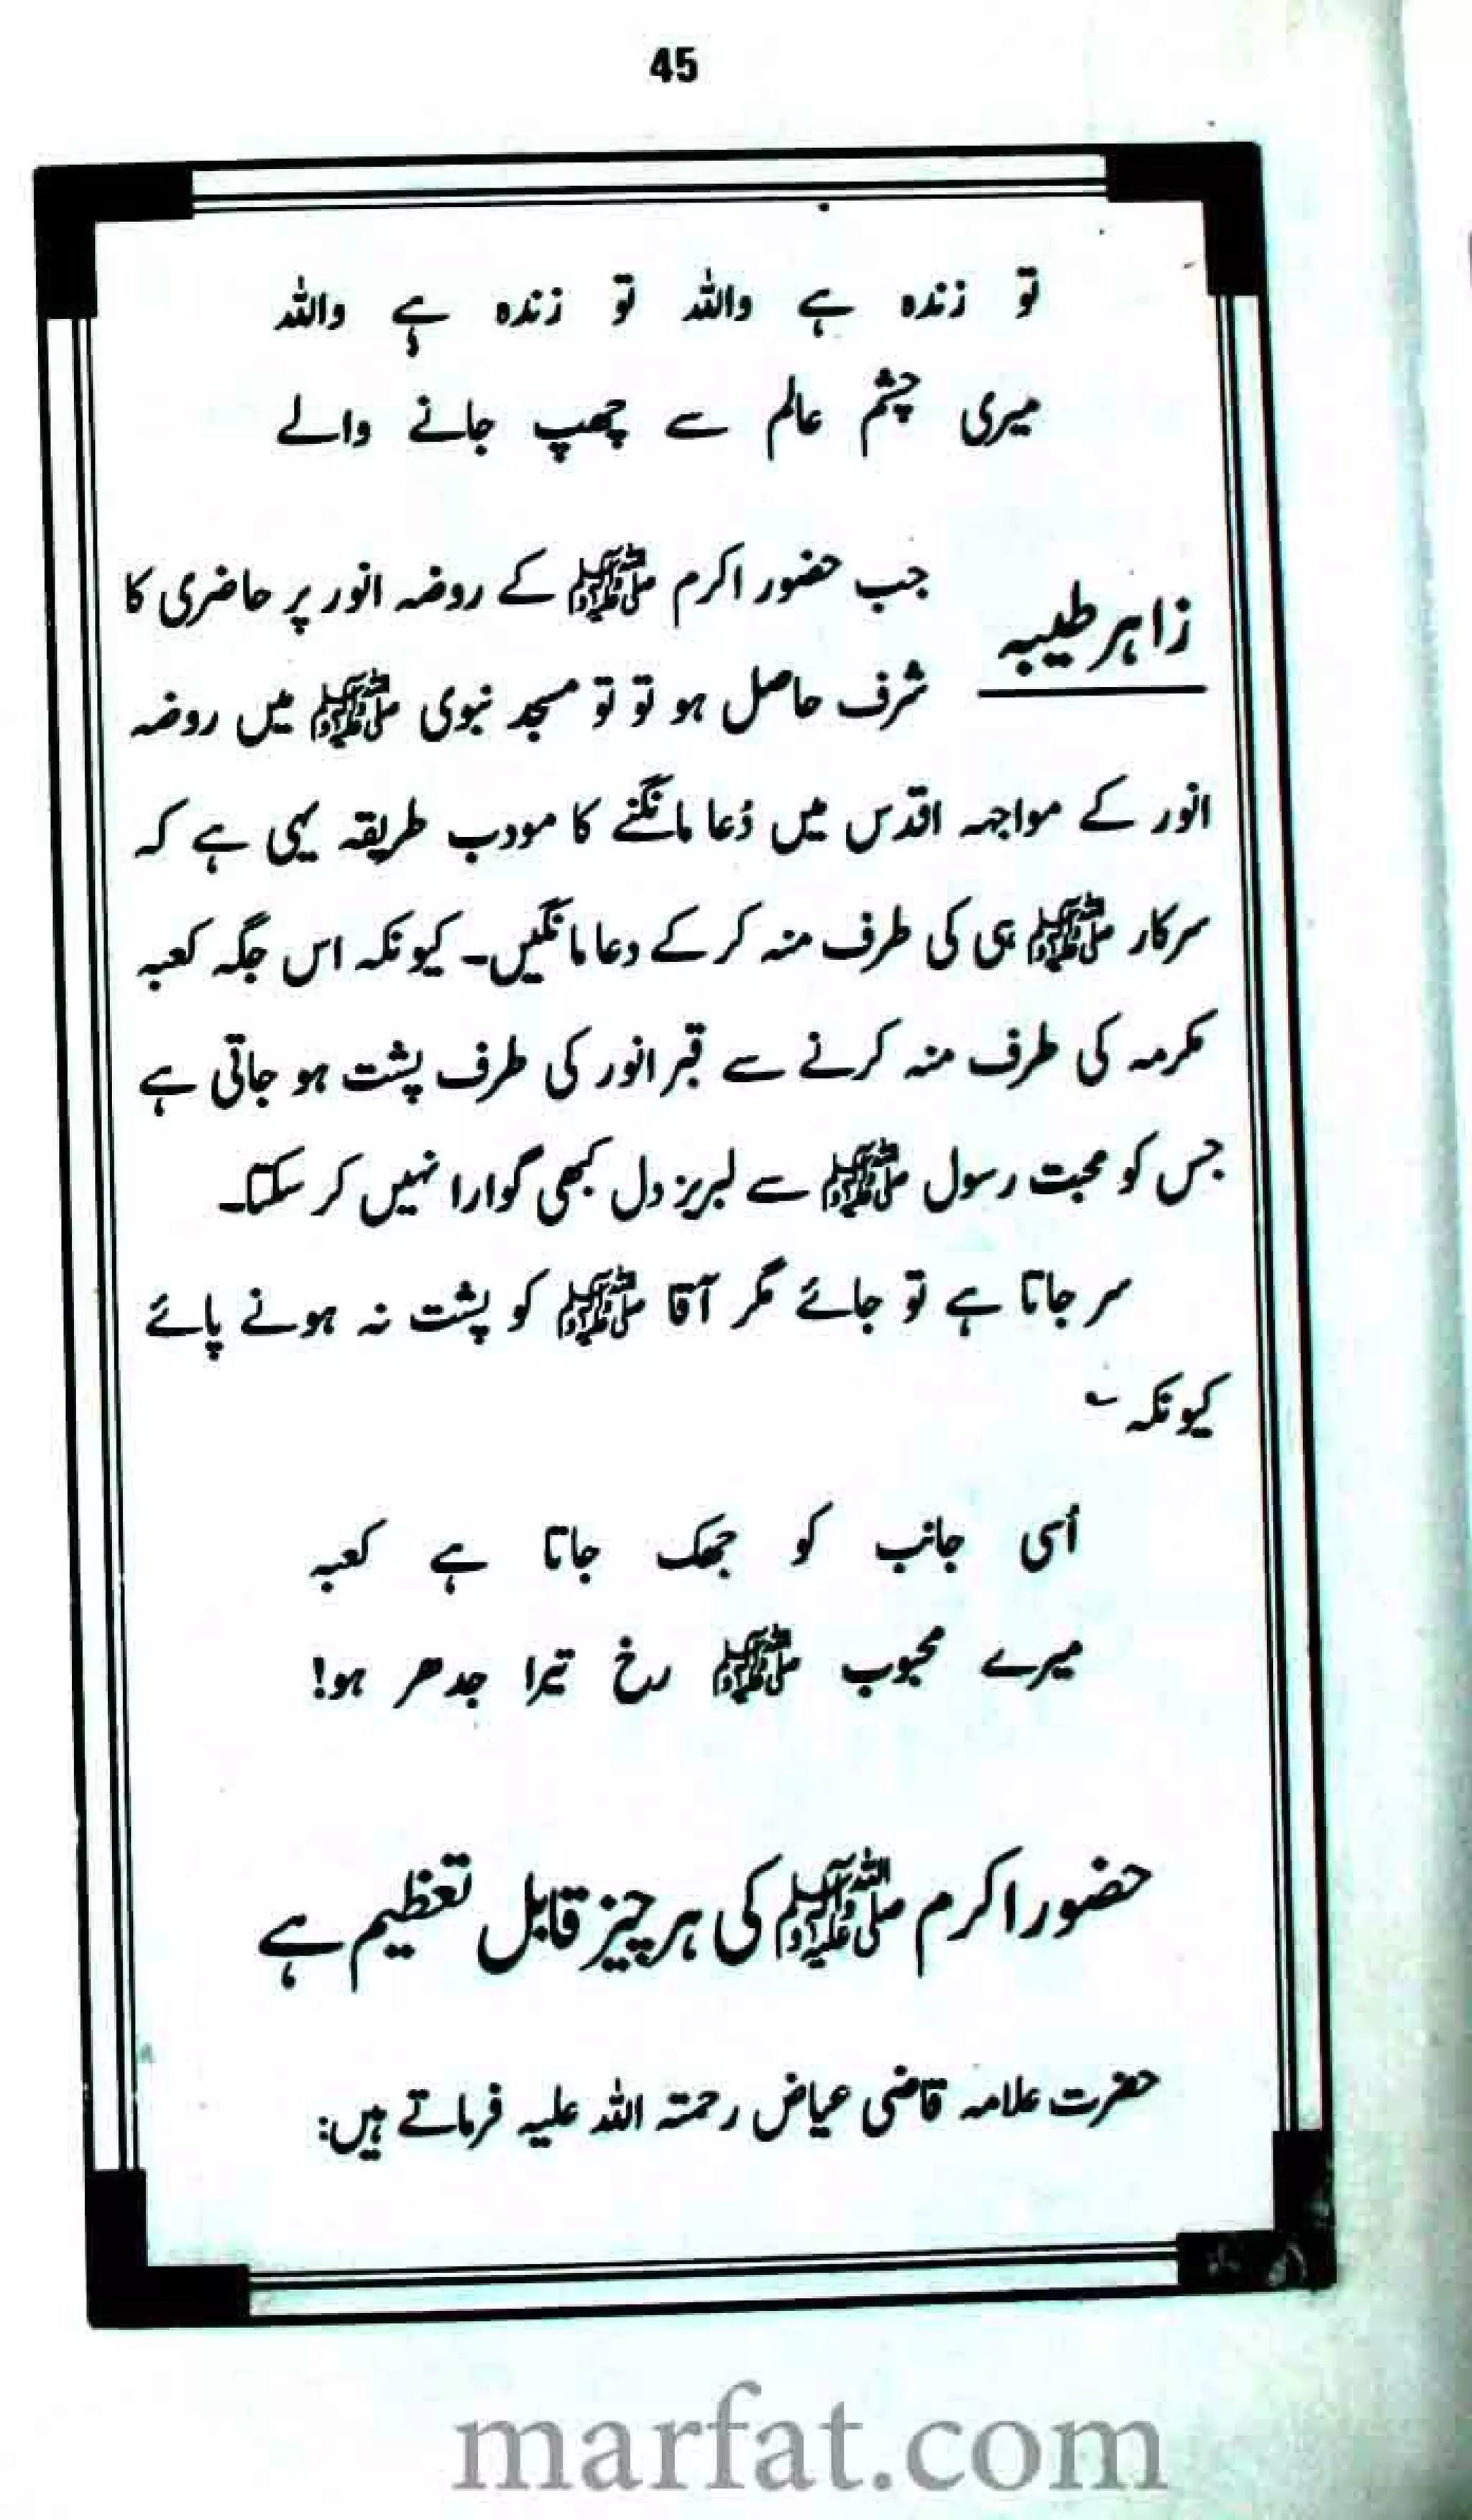 45
تو زندہ ہے واللہ تو زندہ ہے واللہ
میری چشم عالم سے چھپ جانے والے
زاہر طیبہ
جب حضور اکرم ﷺ کے روضہ انور پر حاضری کا
شرف حاصل ہو تو تو مسجد نبوی ﷺ میں روضہ
انور کے مواجہہ اقدس میں دُعا مانگنے کا مودب طریقہ یہی ہے کہ
سرکار ﷺ ہی کی طرف منہ کر کے دعا مانگیں۔ کیونکہ اس جگہ کعبہ
مکرمہ کی طرف منہ کرنے سے قبر انور کی طرف پشت ہو جاتی ہے
جس کو محبت رسول ﷺ سے لبریز دل کبھی گوارا نہیں کر سکتا۔
سر جاتا ہے تو جائے مگر آقا ﷺ کو پشت نہ ہونے پائے
کیونکہ ؎
اُسی جانب کو جھک جاتا ہے کعبہ
میرے محبوب ﷺ رخ تیرا جدھر ہو!
حضور اکرم ﷺ کی ہر چیز قابل تعظیم ہے
حضرت علامہ قاضی عیاض رحمتہ اللہ علیہ فرماتے ہیں:
marfat.com